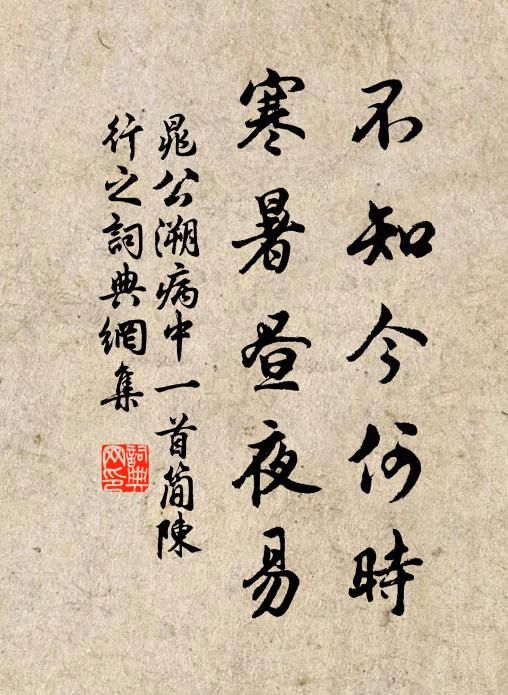 不知今何時
寒暑昼夜易
晁公溯病中一首简陳
行之詞典網集
詞典
网印